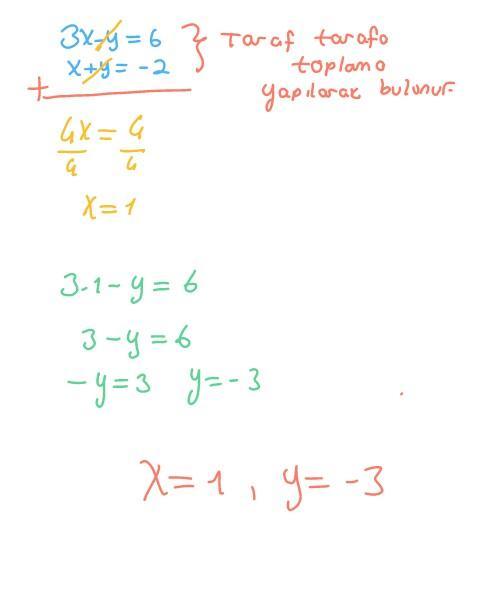 3x-y=6 } Taraf tarafa
x+y=-2 toplama
+ yapılarak bulunur.
4x = 4
4 4
x=1
3·1-y=6
3-y=6
-y=3 y=-3
x=1, y=-3